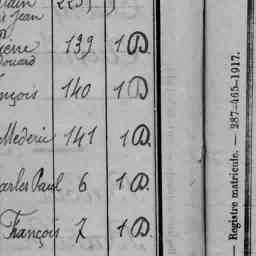 Jean
139 1 D.
nçois 140 1 D
Mederic 141 1 D.
arles Paul 6 1 D.
François 7 1 D.
— Registre matricule. — 287-465-1917.